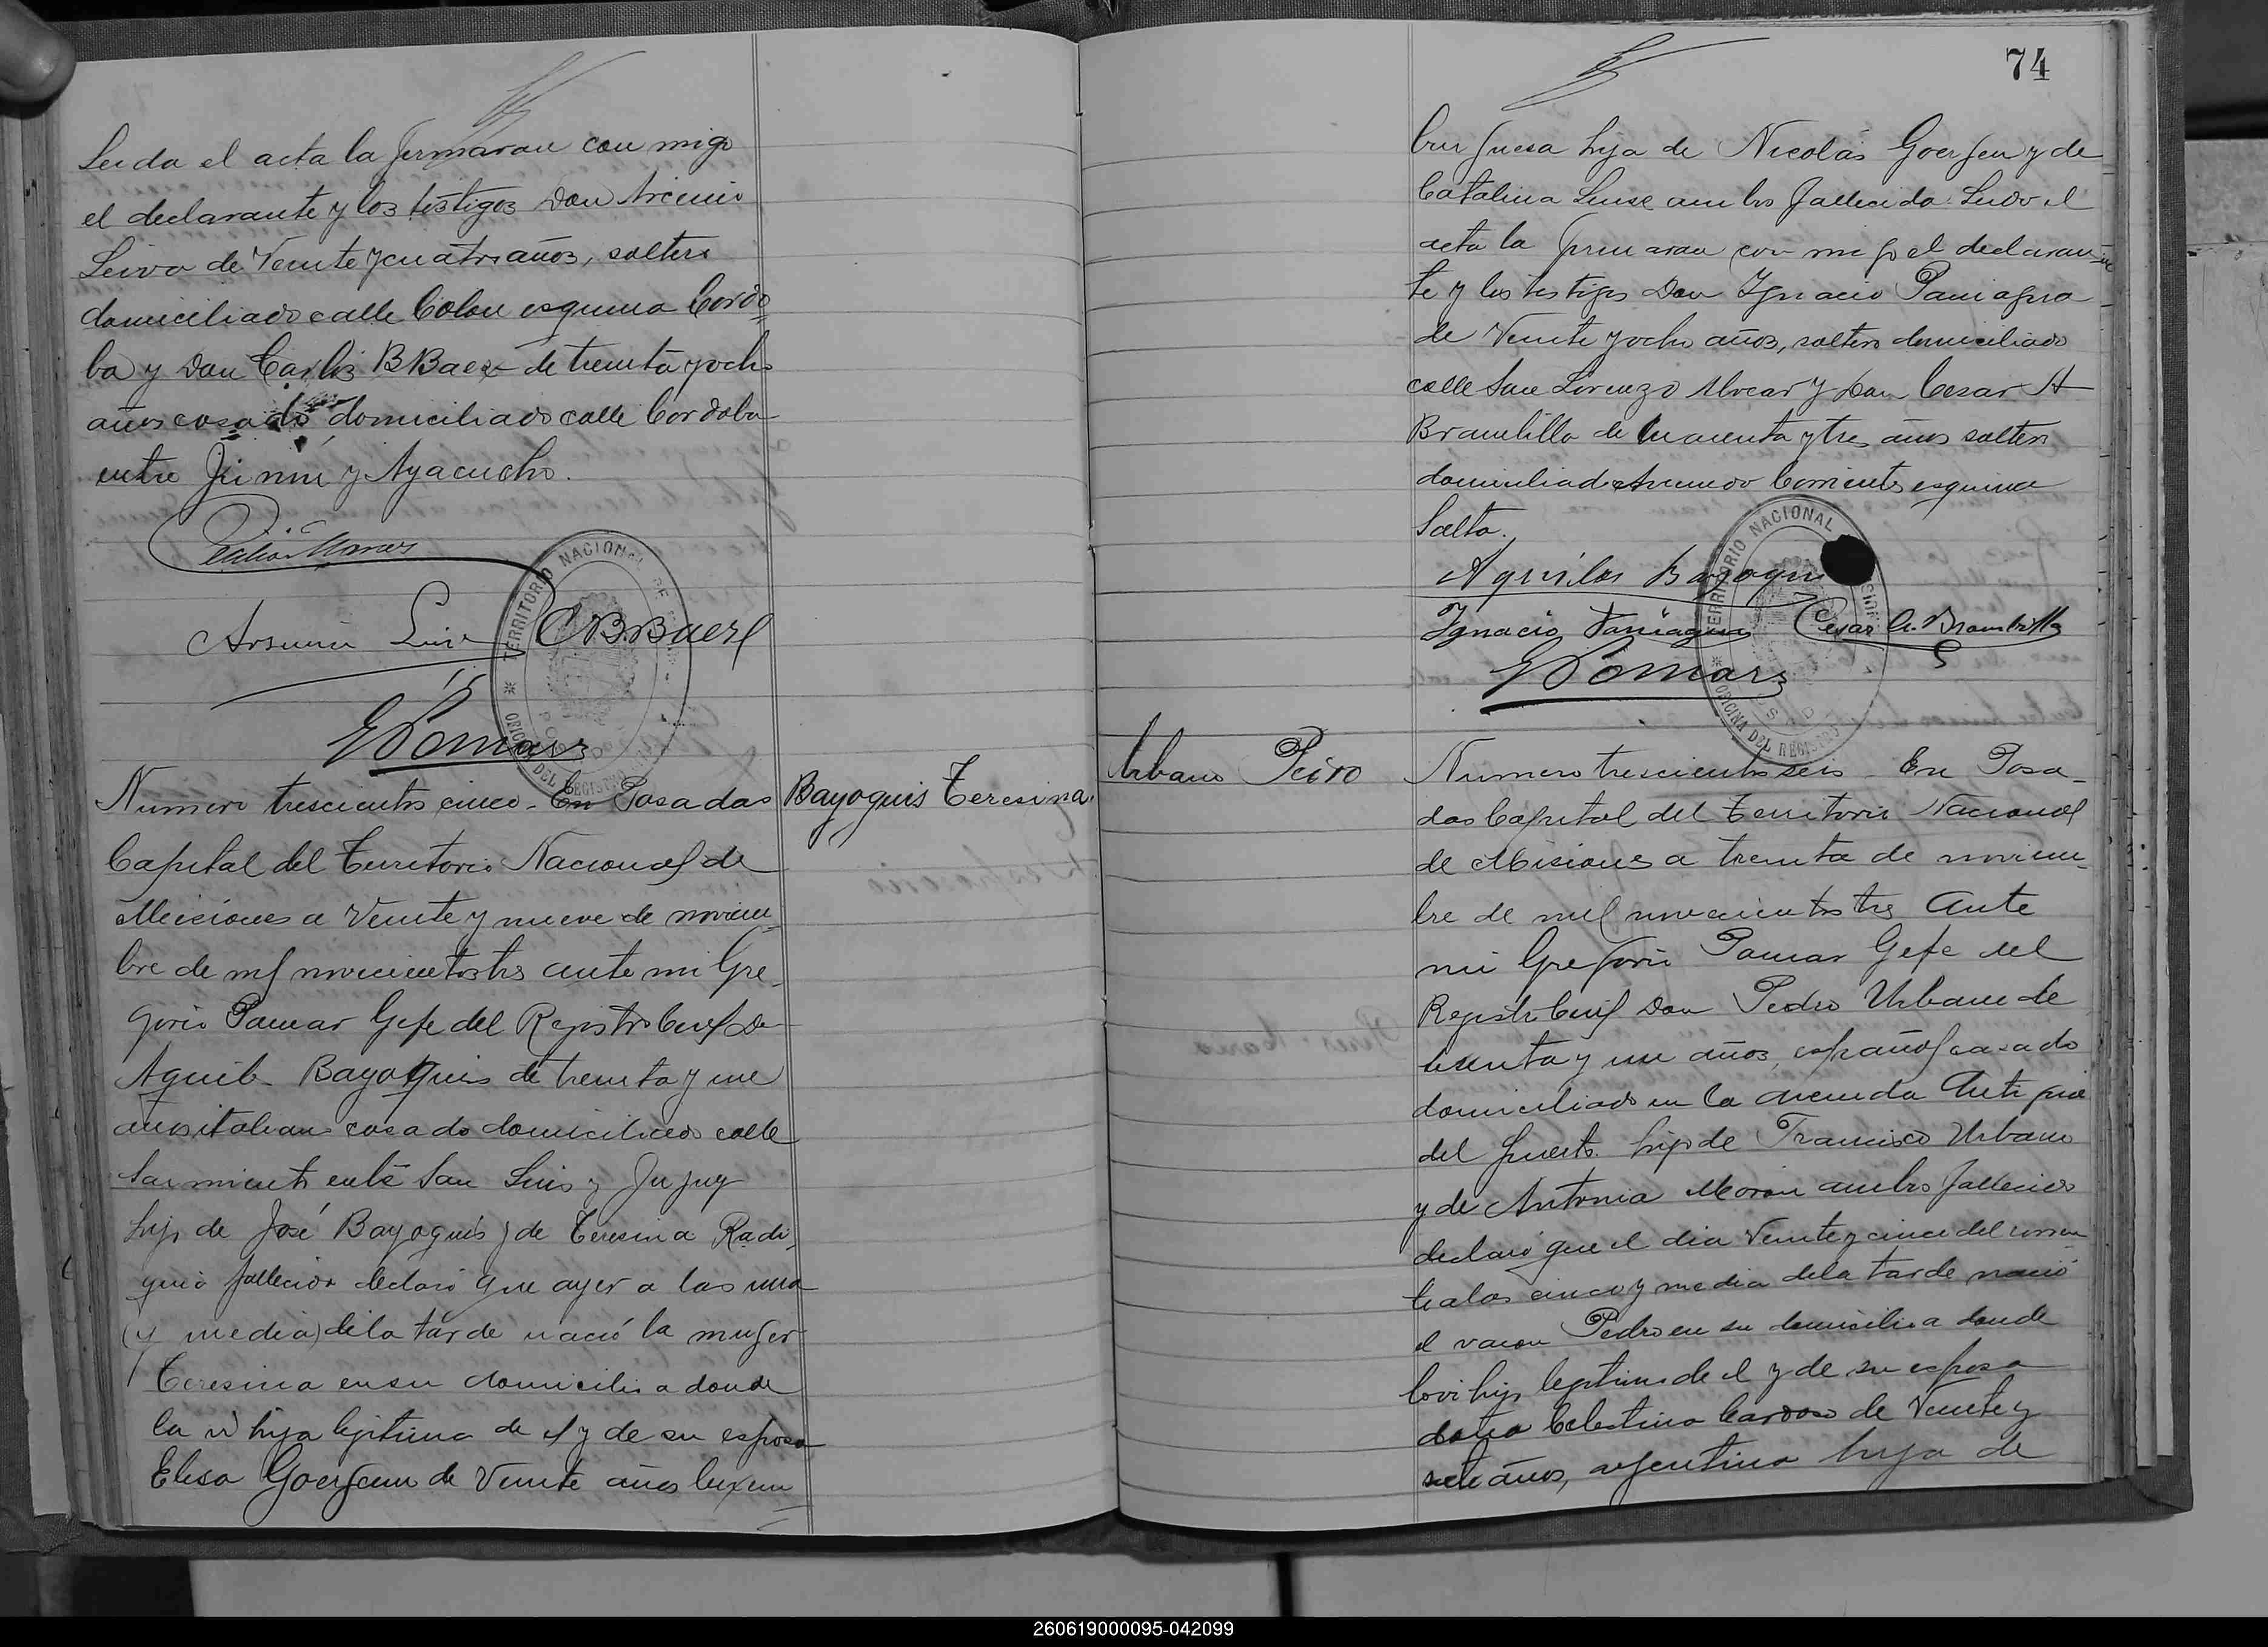 Leida el acta la firmaran con migo
el declarante y los testigos Don Arcenio
Leiva de Veinte y cuatro años, soltero
domiciliado calle Colon esquina Cordo
ba y Don Carlos B Baez de treinta y ocho
años casado domiciliado calle Cordoba
entre Junin y Ayacucho.
CBBaez
G Pomar
Numero trescientos cinco - En Posadas
Capital del Territorio Nacional de
Misiones a Veinte y nueve de noviem
bre de mil novecientos tres ante mi Gre
gorio Pomar Gefe del Registro Civil Dn
Aquile Bayoquis de treinta y un
años italiano casado domiciliado calle
Sarmiento entre San Luis y Jujuy
hijo de José Bayoquis y de Teresina Radi
fallecidos declaró que ayer a las una
(y media) de la tarde nació la mujer
Teresina en su domicilio a donde
la ví hija legitima de el y de su esposa
Elisa Goergen de Veinte años luxem
Bayoquis Teresina
74
burguesa hija de Nicolás Goergen y de
Catalina Lense ambos fallecido Leido el
acta la firmaran con migo el declaran
te y los testigos Don Ignacio Paniagua
de Veinte y ocho años, soltero domiciliado
calle San Lorenzo Alvear y Don Cesar A
Brambilla de cuarenta y tres años soltero
domiciliado Avenida Corrientes esquina
Salta.
Aquiles Bayoquis
Ignacio Paniagua Cesar A. Brambilla
G Pomar
TERRITORIO NACIONAL
OFICINA DEL REGISTRO
Urbano Pedro
Numero trescientos seis - En Posa-
das Capital del Territorio Nacional
de Misiones a treinta de noviem-
bre de mil novecientos tres Ante
mi Gregorio Pomar Gefe del
Registro Civil Don Pedro Urbano de
treinta y un años, español casado
domiciliado en la avenida Antigua
del puerto hijo de Francisco Urbano
y de Antonia Moran ambos fallecidos
declaró que el dia Veinte y cinco del corrien
te a las cinco y media de la tarde nació
el varon Pedro en su domicilio a donde
lo vi hijo legitimo de el y de su esposa
doña Celestina Cardoso de Veinte y
siete años, argentina hija de
260619000095-042099